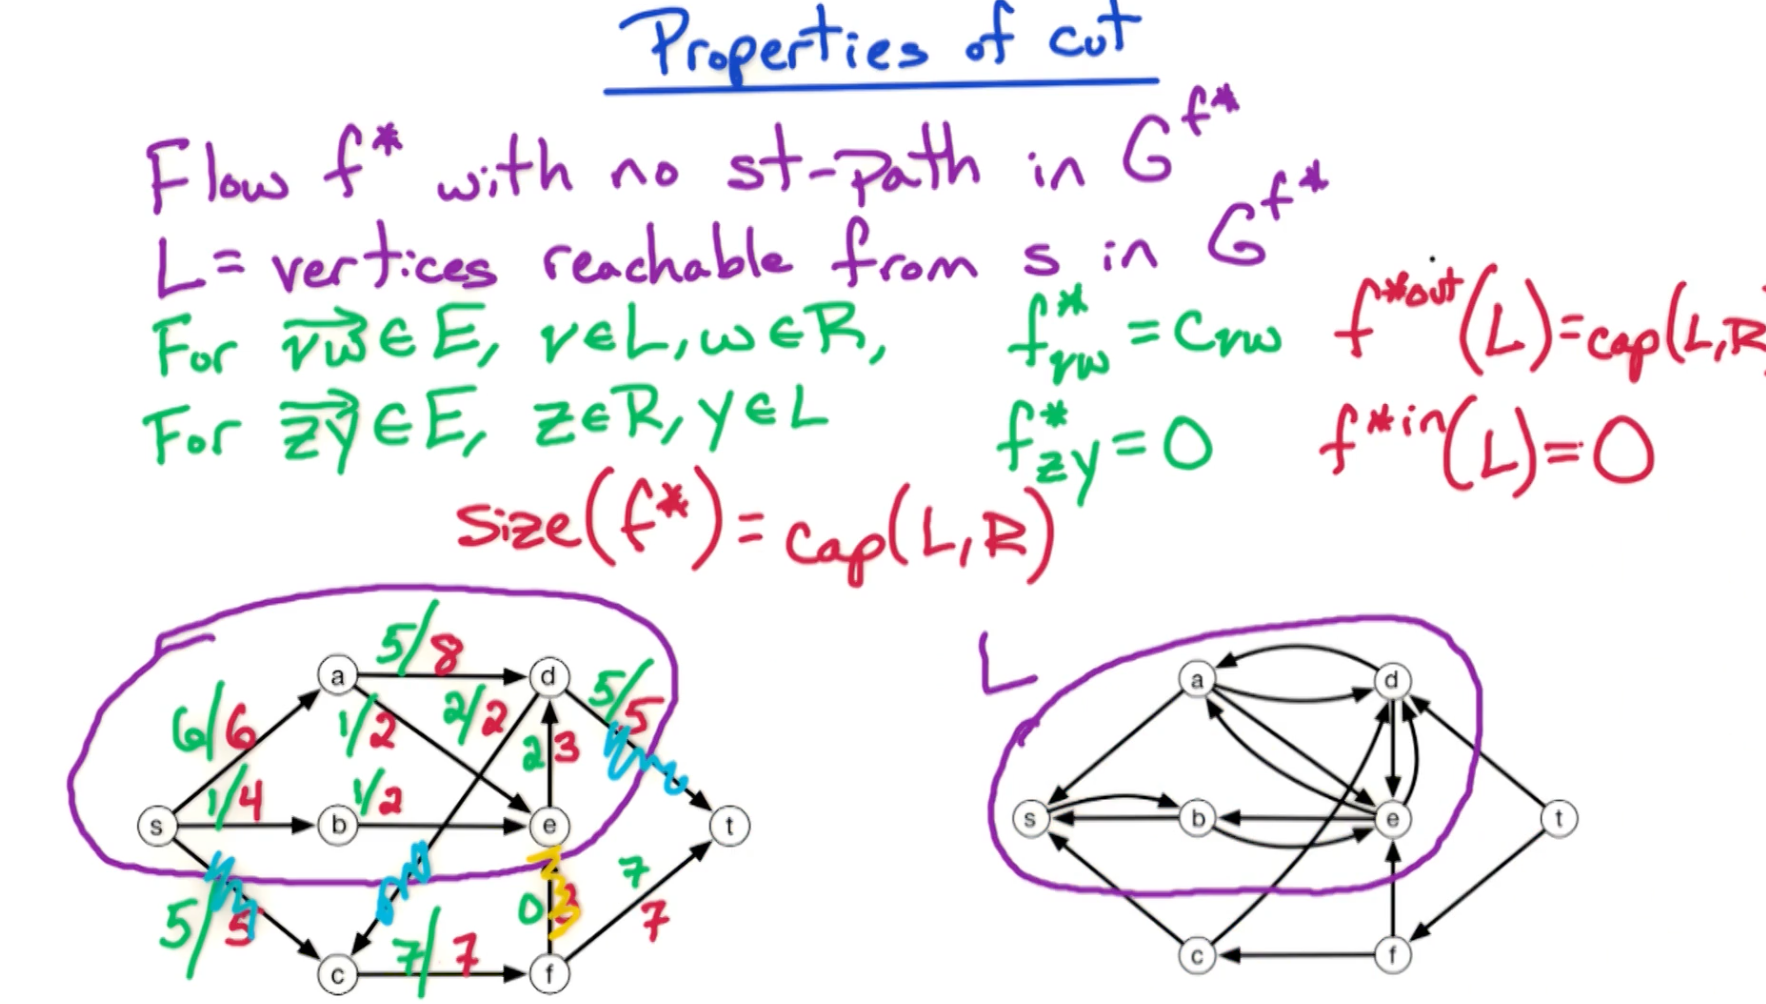 Properties of cut
Flow f* with no st-path in G^f*
L = vertices reachable from s in G^f*
For vw ∈ E, v ∈ L, w ∈ R, f*vw = Cvw f*out(L) = cap(L,R
For zy ∈ E, z ∈ R, y ∈ L f*zy = 0 f*in(L) = 0
Size(f*) = cap(L,R)
5/8
a d
6/6 1/2 2/2 2 3 5/5
1/4 1/2
s b e t
5/5 0 3 7
7/7 7
c f
L
a d
s b e t
c f